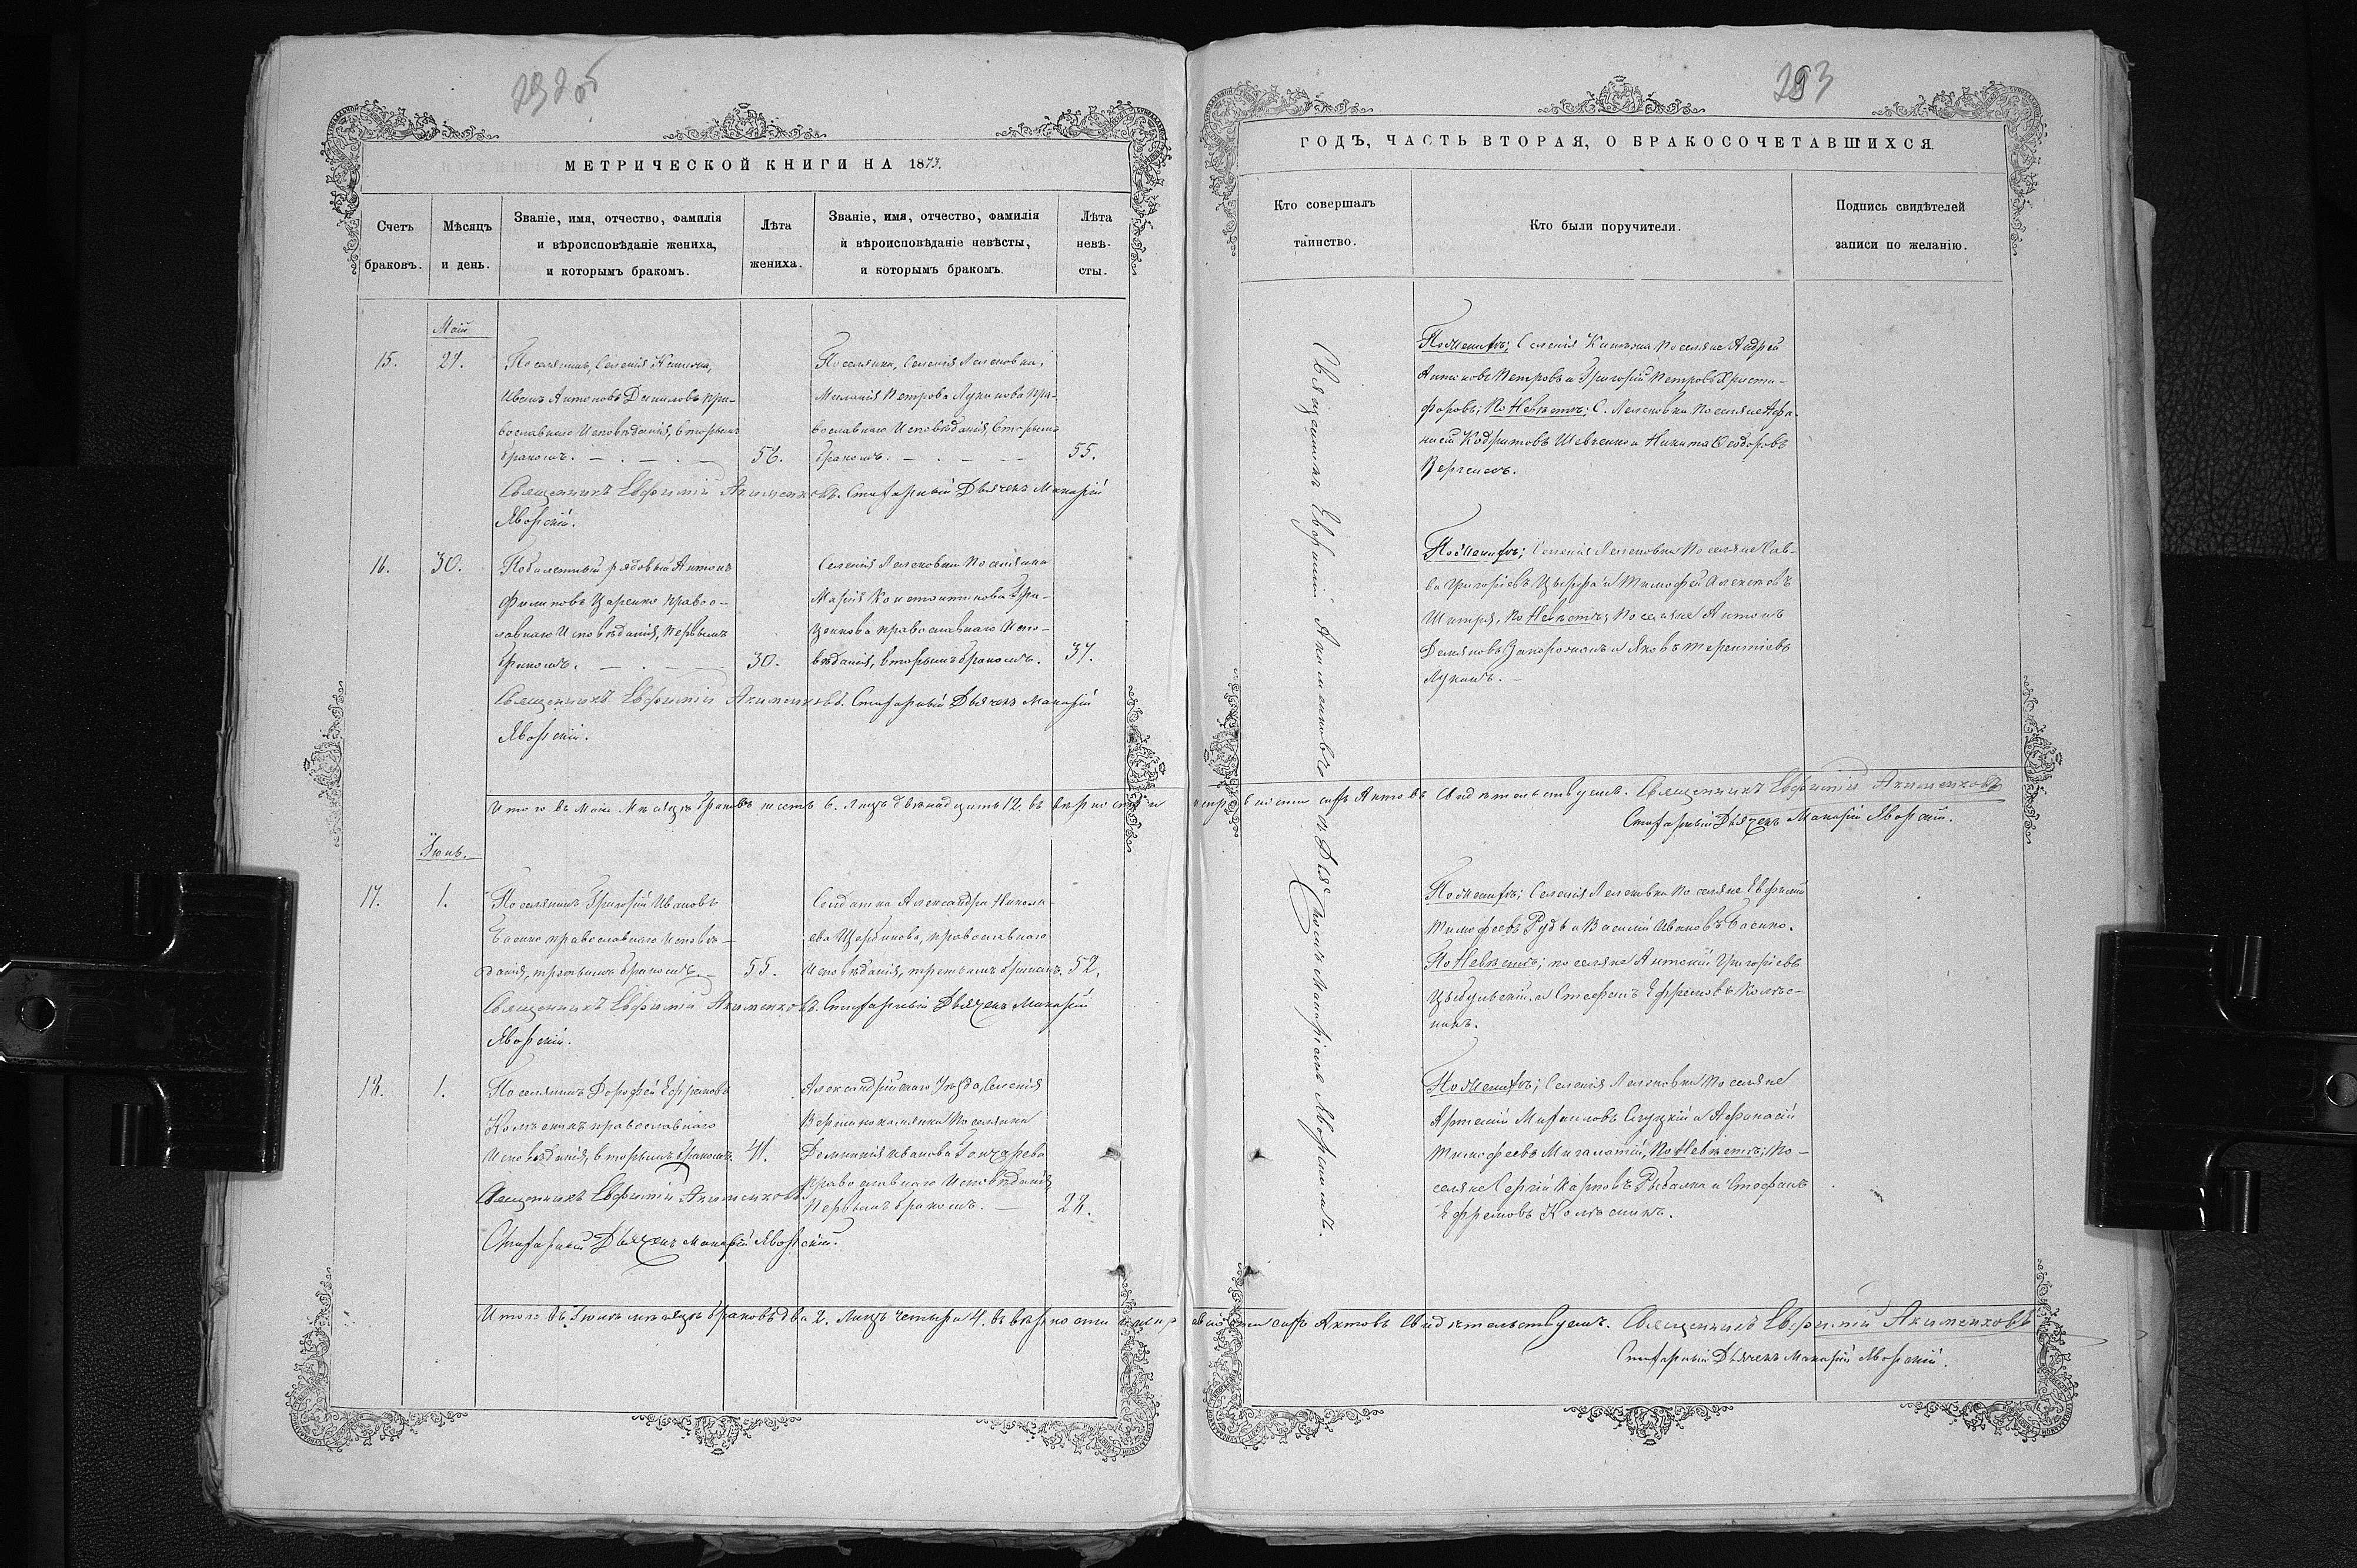 292 об
МЕТРИЧЕСКОЙ КНИГИ НА 1873.
Счетъ
браковъ.
Мѣсяцъ
и день.
Званіе, имя, отчество, фамилія
и вѣроисповѣданіе жениха,
и которымъ бракомъ.
Лѣта
жениха.
Званіе, имя, отчество, фамилія
и вѣроисповѣданіе невѣсты,
и которымъ бракомъ.
Лѣта
невѣ-
сты.
Маій
15.
27.
Поселянинъ, Селенія
Иванъ Антоновъ Даниловъ пра-
вославнаго Исповѣданія, вторымъ
бракомъ.
56.
Поселянка, Селенія Лелековки,
Меланія Петрова Лукинова пра-
вославнаго Исповѣданія, вторымъ
бракомъ.
55.
Священникъ Евфимій Акименковъ. Стихарный Дьячекъ Макарій
Яворскій.
16.
30.
Побилетный рядовый Антонъ
Филиповъ Царенко правос-
лавнаго Исповѣданія, первымъ
бракомъ.
30.
Селенія Лелековки поселянка
Марія Константинова Гри-
ценкова православнаго Испо-
вѣданія, вторымъ бракомъ.
37.
Священникъ Евфимій Акименковъ. Стихарный Дьячекъ Макарій
Яворскій.
Итого въ Маіи Мѣсяцѣ браковъ шесть 6. Лицъ двѣнадцать 12. въ вѣрности и
Іюнь.
17.
1.
Поселянинъ Григорій Ивановъ
Баенко православнаго исповѣ-
данія, третьимъ бракомъ.
55.
Солдатка Александра Никола-
ева Щербинова, православнаго
Исповѣданія, третьимъ бракомъ.
52.
Священникъ Евфимій Акименковъ. Стихарный Дьячекъ Макарій
Яворскій.
18.
1.
Поселянинъ Дорофей Ефремовъ
Колѣсникъ православнаго
Исповѣданія, вторымъ бракомъ.
41.
Александрійскаго Уѣзда, Селенія
Поселянка
Домникія Иванова Гончарева
православнаго Исповѣданія
первымъ бракомъ.
28.
Священникъ Евфимій Акименковъ.
Стихарный Дьячекъ Макарій Яворскій.
Итого въ Іюнѣ мѣсяцѣ браковъ два 2. Лицъ четыри 4. въ вѣрности
293
ГОДЪ, ЧАСТЬ ВТОРАЯ, О БРАКОСОЧЕТАВШИХСЯ.
Кто совершалъ
таинство.
Кто были поручители.
Подпись свидѣтелей
записи по желанію.
Священникъ Евфимій Акименковъ съ Дьячкомъ Макаріемъ Яворскимъ.
По Женихѣ; Селенія поселяне Андрей
Антоновъ Петровъ и Григорій Петровъ Христо-
форовъ; По Невѣстѣ; С. Лелековки поселяне Афа-
насій Кодратовъ Шевченко и Никита Ѳеодоровъ
По Женихѣ; Селенія Лелековки поселяне Сав-
ва Григоріевъ Цыфра и Тимофей Алексѣевъ
По Невѣстѣ; поселяне Антонъ
Демяновъ Запорожецъ и Яковъ Терентіевъ
Лукинъ.
сихъ Актовъ свидѣтельствуемъ. Священникъ Евфимій Акименковъ
Стихарный Дьячекъ Макарій Яворскій.
По Женихѣ; Селенія Лелековки поселяне Евфимій
Тимофеевъ Рудь и Василій Ивановъ Баенко.
По Невѣстѣ; поселяне Антоній Григоріевъ
Цыбульскій и Стефанъ Ефремовъ Колѣс-
никъ.
По Женихѣ; Селенія Лелековки поселяне
Артемій Михаиловъ и Афанасій
Тимофеевъ По Невѣстѣ; По-
селяне Сергій Карповъ Рыбалка и Стефанъ
Ефремовъ Колѣсникъ.
сихъ Актовъ свидѣтельствуемъ. Священникъ Евфимій Акименковъ
Стихарный Дьячекъ Макарій Яворскій.